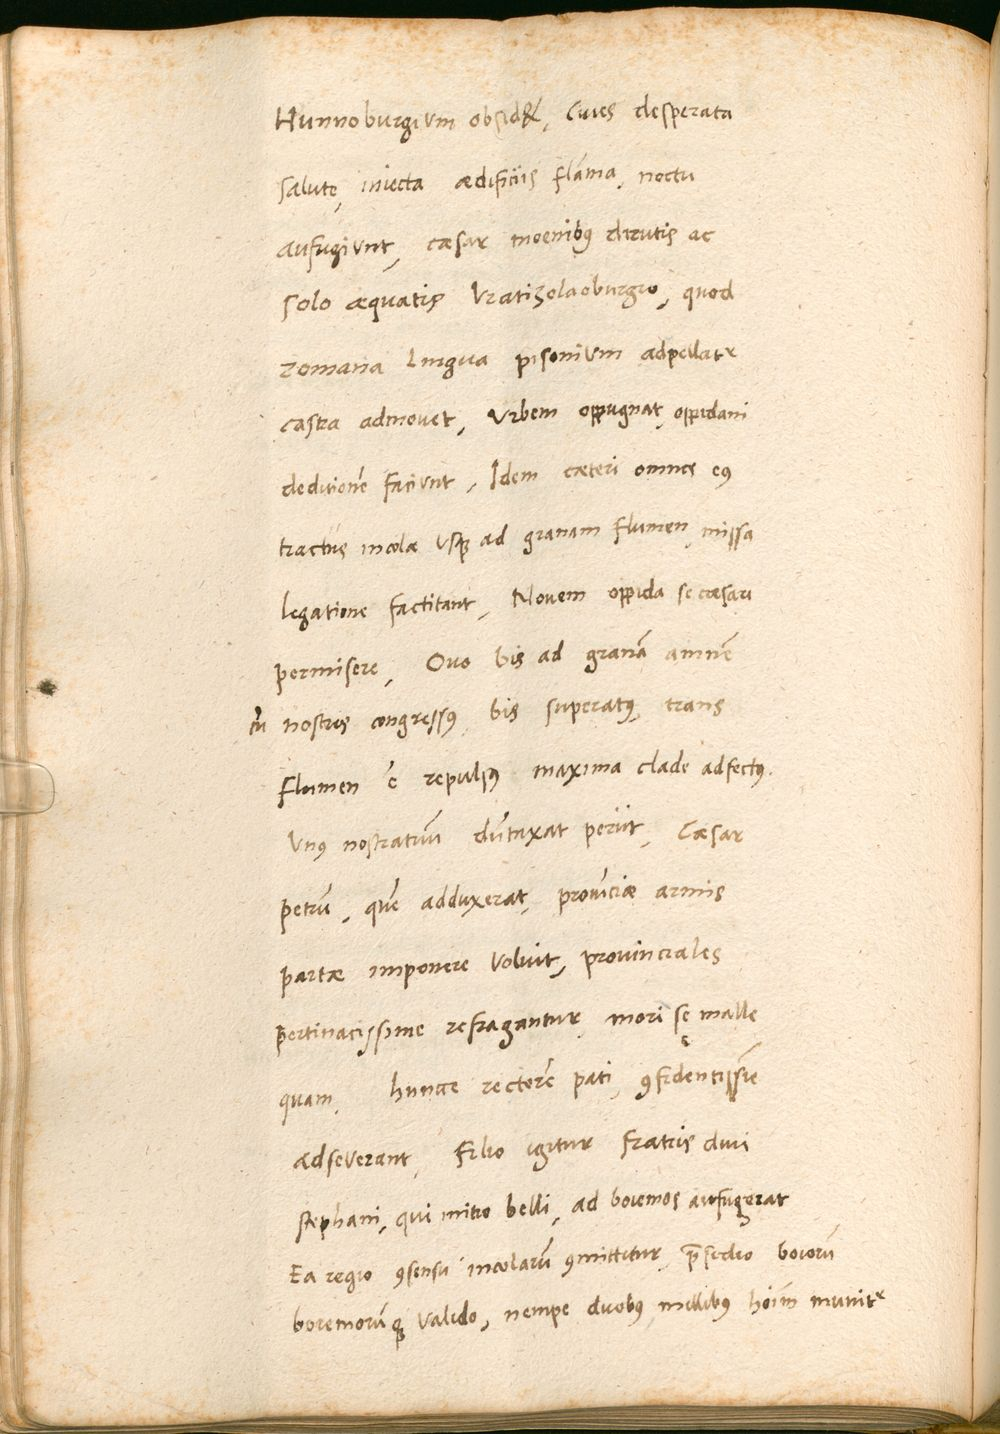 Hunnoburgium obsid&, Cives desperata
salute, iniecta ædificiis flāma, noctu
aufugiunt, cæsar moenibꝰ dirutis ac
solo æquatis Vratizolaoburgio, quod
romana lingua pisonium adpellatr
castra admovet, Vrbem oppugnat, oppidani
deditionē faciunt, Idem cæteri omnes eiꝰ
tractus incolæ usqꝫ ad granam flumen, missa
legatione factitant, Novem oppida se cæsari
permisere, Ovo bis ad granā amnē
cū nostris congressꝰ, bis superatꝰ, trans
flumen ē repulsꝰ maxima clade adfectꝰ.
Vnꝰ nostratiū dūtaxat periit, Cæsar
petrū, quē adduxerat, provīciæ armis
partæ imponere voluit, provinciales
pertinacissime refragantur, mori se malle
quam, huncce rectorē pati, ꝯfidentissīe
adseverant, Filio igitur fratris divi
stephani, qui initio belli, ad boiemos aufugerat
Ea regio ꝯsensu incolarū ꝯmittitur, p̄sedio boiorū
boiemorūqꝫ valido, nempe duobꝰ millibꝰ hoīm munitr